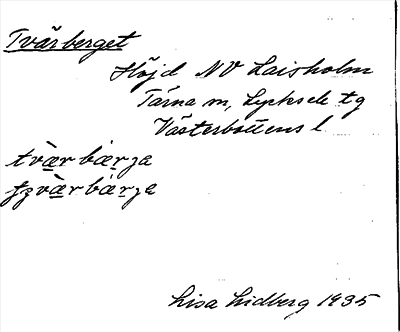 Tvärberget
Höjd NV Laisholm
Tärna sn, Lycksele tg
Västerbottens l
tvæ̀r bær̀ja
Lisa Lidberg 1935